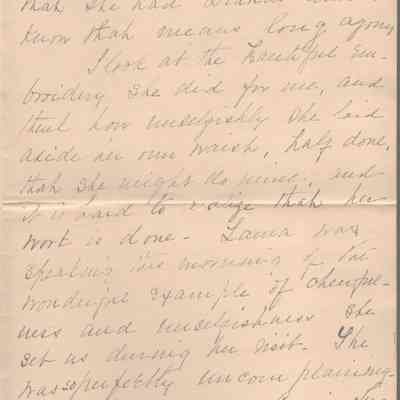 that she had
know that means long agony
I look at the beautiful em-
broidery she did for me, and
think how unselfishly she laid
aside her own waish, half done,
that she might do mine, and
it is hard to realize that her
work is done - Laura was
speaking this morning of the
wonderful example of cheerful-
ness and unselfishness she
set us during her visit. She
was so perfectly uncomplaining-